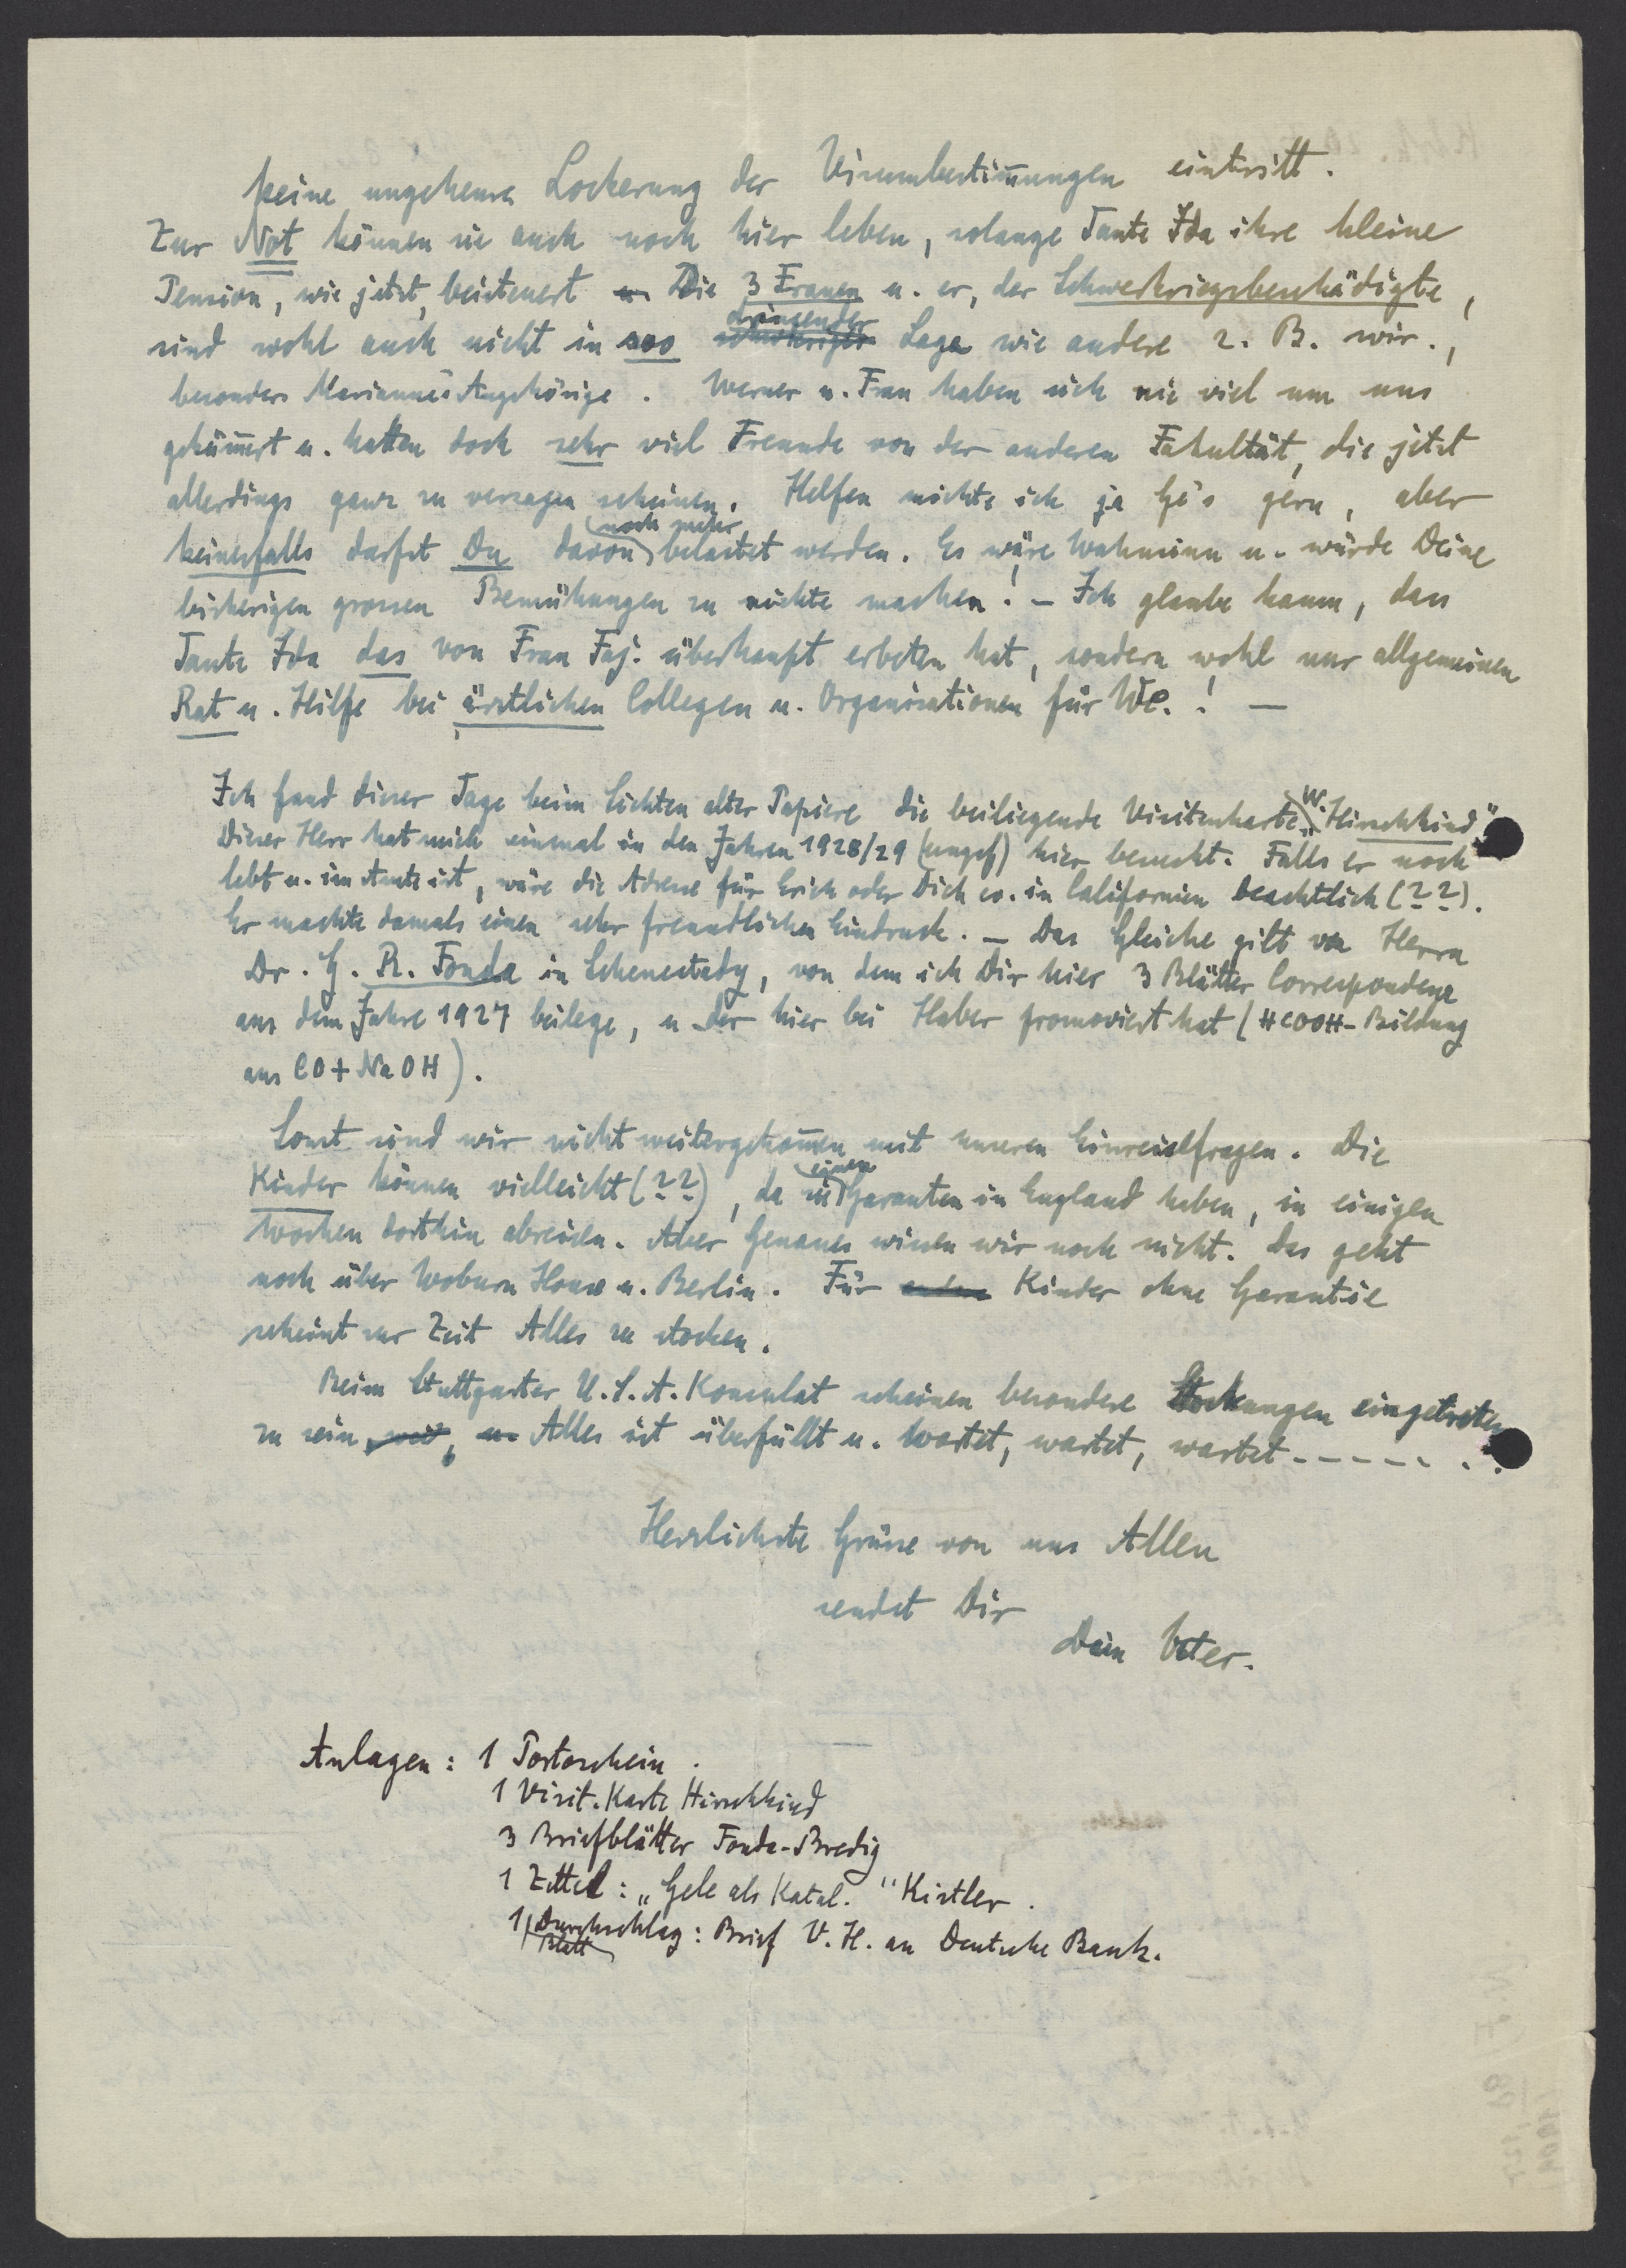 keine ungeheure Lockerung der Visumbestim̅ungen eintritt.
Zur Not können sie auch noch hier leben, solange Tante Ida ihre kleine
Pension, wie jetzt, beisteuert u. Die 3 Frauen u. er, der Schwerkriegsbeschädigte,
sind wohl auch nicht in soo dringender Lage wie andere z. B. wir.,
besonders Marianne's Angehörige. Werner u. Frau haben sich nie viel um uns
geküm̅ert u. hatten doch sehr viel Freunde von der anderen Fakultät, die jetzt
allerdings ganz zu versagen scheinen. Helfen möchte ich ja Ge's gern, aber
keinesfalls darfst Du davon noch mehr belastet werden. Es wäre Wahnsinn u. würde Deine
bisherigen grossen Bemühungen zu nichte machen! – Ich glaube kaum, dass
Tante Ida das von Frau Faj. überhaupt erbeten hat, sondern wohl nur allgemeinen
Rat u. Hilfe bei ärztlichen Collegen u. Organisationen für We.! –
Ich fand dieser Tage beim Sichten alter Papiere die beiliegende Visitenkarte „W. Hirschkind"
Dieser Herr hat mich einmal in den Jahren 1928/29 (ungef) hier besucht. Falls er noch
lebt u. im Amte ist, wäre die Adresse für Erich oder Dich ev. in Californien beachtlich (??).
Er machte damals einen sehr freundlichen Eindruck. – Das Gleiche gilt von Herrn
Dr. G. R. Fonda in Schenectady, von dem ich Dir hier 3 Blätter Correspondenz
aus dem Jahre 1927 beilege, u. der hier bei Haber promoviert hat (HCOOH-Bildung
aus CO + NaOH).
Sonst sind wir nicht weitergekom̅en mit unseren Einreisefragen. Die
Kinder können vielleicht (??), da sie einen Garanten in England haben, in einigen
Wochen dorthin abreisen. Aber Genaues wissen wir noch nicht. Das geht
noch über Woburn House u. Berlin. Für Kinder ohne Garantie
scheint zur Zeit Alles zu stocken.
Beim Stuttgarter U.S.A. Konsulat scheinen besondere Stockungen eingetreten
zu sein, Alles ist überfüllt u. wartet, wartet, wartet - - - - - . .
Herzlichste Grüsse von uns Allen
sendet Dir
Dein Vater.
Anlagen: 1 Portoschein.
1 Visit. Karte Hirschkind
3 Briefblätter Fonda-Bredig
1 Zettel: „Gele als Katal." Kistler.
1 Blatt Durchschlag: Brief V. H. an Deutsche Bank.